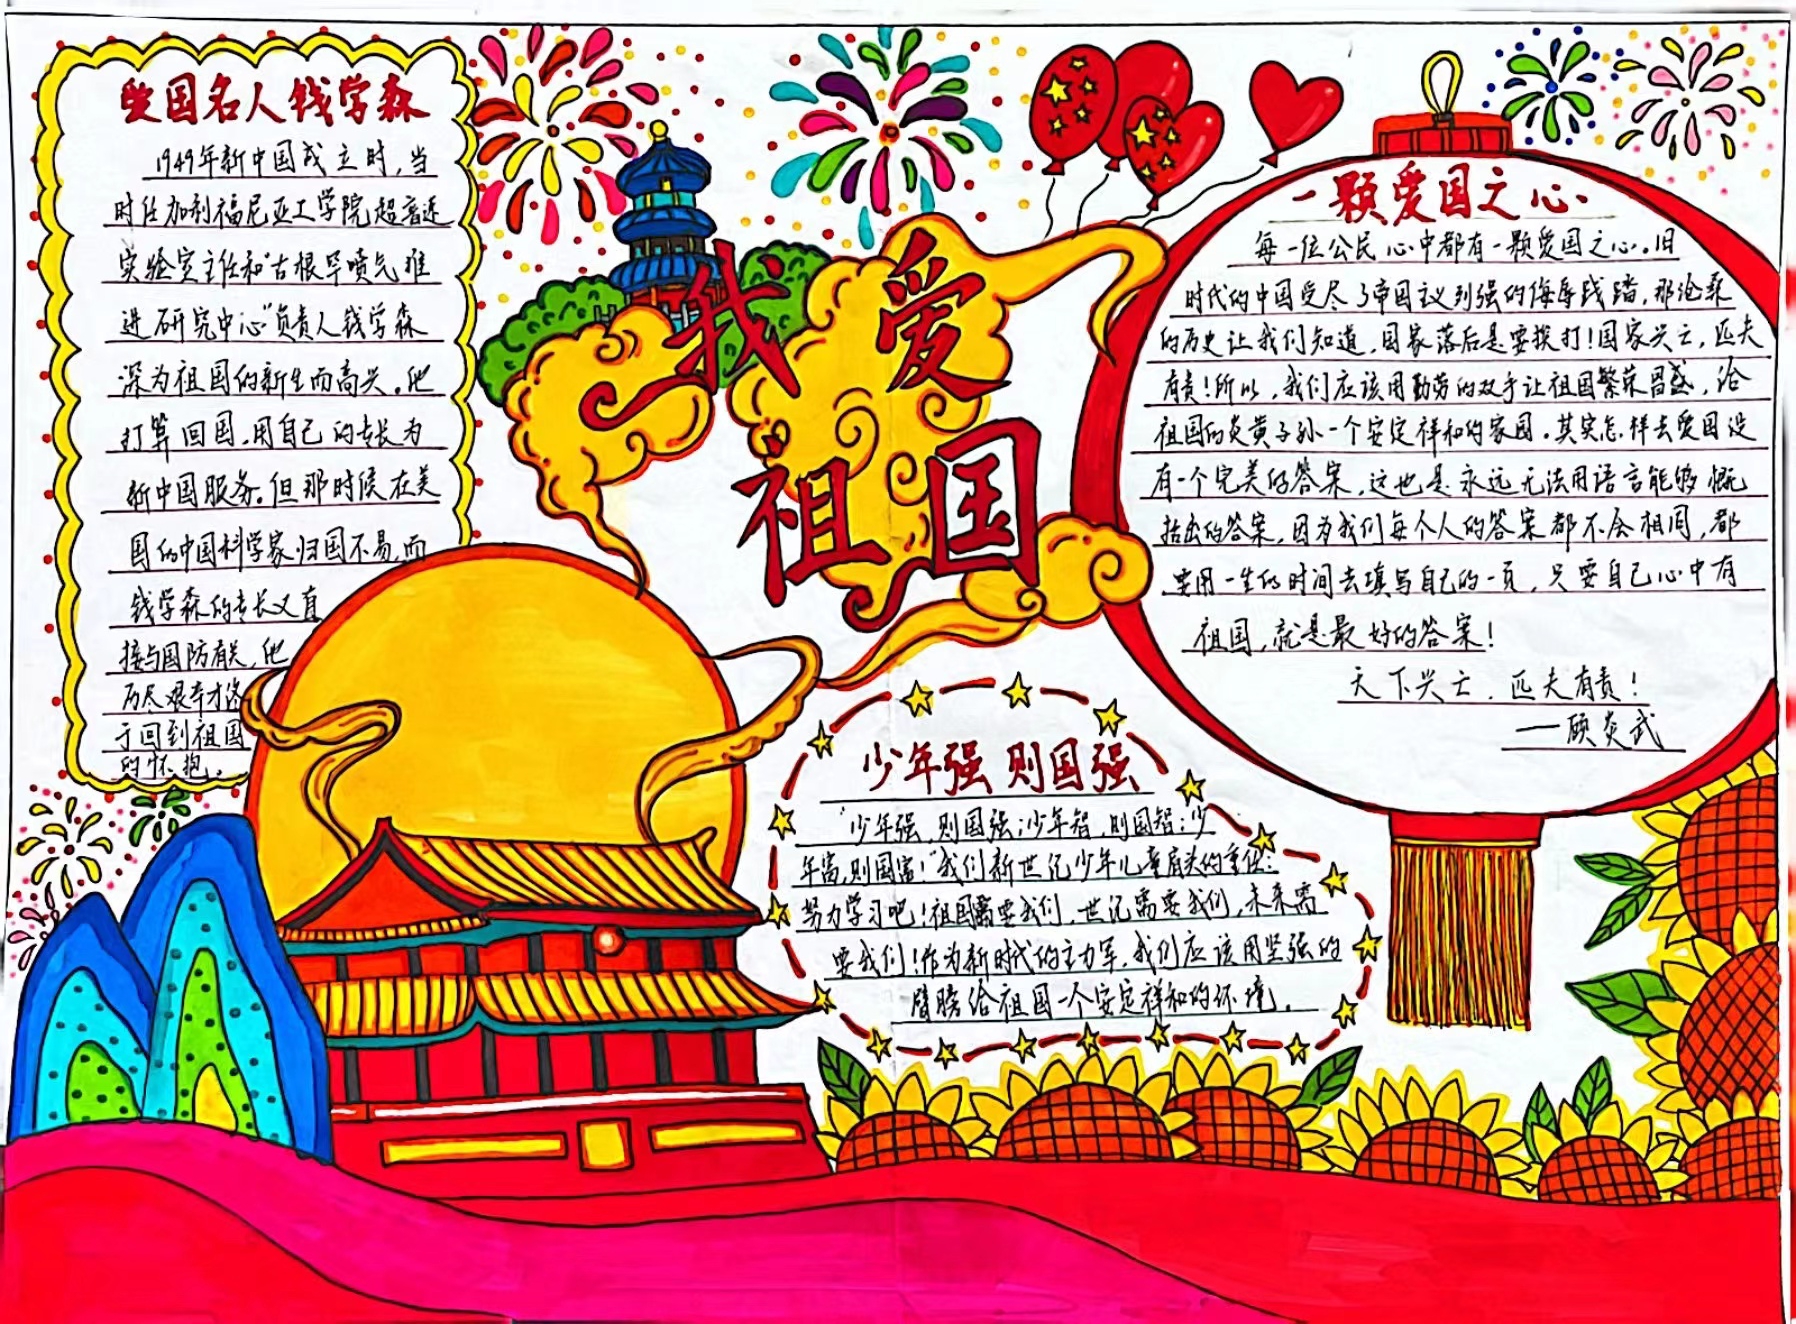 爱国名人钱学森
1949年新中国成立时,当
时任加利福尼亚工学院超音速
实验室主任和"古根罕喷气推
进研究中心"负责人钱学森
深为祖国的新生而高兴。他
打算回国,用自己的专长为
新中国服务。但那时候在美
国的中国科学家归国不易,而
钱学森的专长又直
接与国防有关,他
历尽艰辛才终
于回到祖国
的怀抱。
我爱
祖国
一颗爱国之心
每一位公民心中都有一颗爱国之心。旧
时代的中国受尽了帝国主义列强的侮辱践踏,那沧桑
的历史让我们知道,国家落后是要挨打!国家兴亡,匹夫
有责!所以,我们应该用勤劳的双手让祖国繁荣昌盛,给
祖国的炎黄子孙一个安定祥和的家园。其实怎样去爱国没
有一个完美的答案,这也是永远无法用语言能够概
括出的答案,因为我们每个人的答案都不会相同,都
要用一生的时间去填写自己的一页,只要自己心中有
祖国,就是最好的答案!
天下兴亡,匹夫有责!
——顾炎武
少年强 则国强
"少年强,则国强;少年智,则国智;少
年富,则国富!"我们新世纪少年儿童肩头的重任:
努力学习吧!祖国需要我们,世纪需要我们,未来需
要我们!作为新时代的主力军,我们应该用坚强的
臂膀给祖国一个安定祥和的环境。